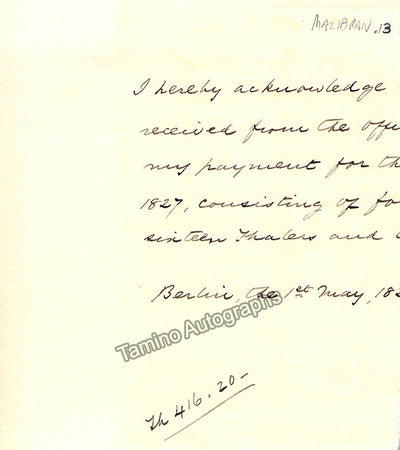 MALIBRAN .13
I hereby acknowledge
received from the offi
my payment for th
1827, consisting of fo
sixteen Thalers and
Berlin, the 1st May, 182
Tamino Autographs
Th 416.20-